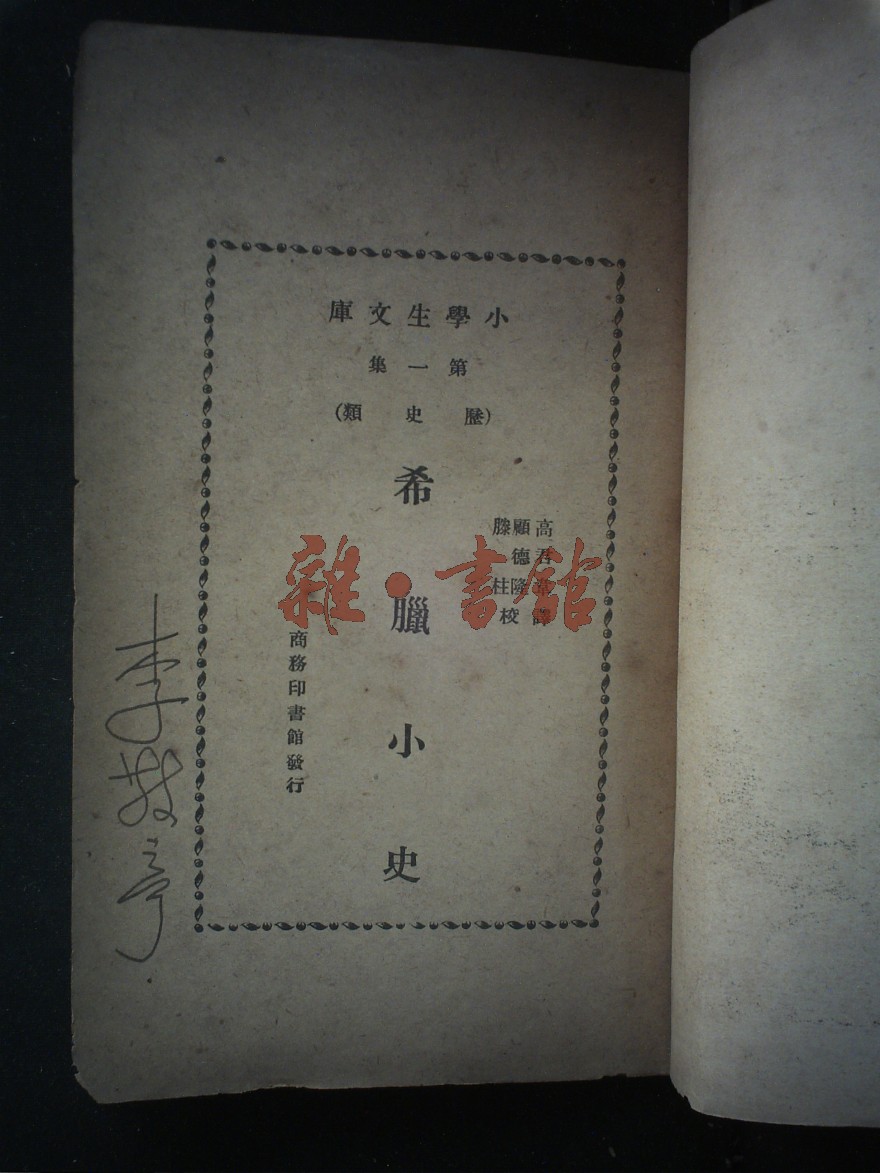 小學生文庫
第一集
(歷史類)
高君韋譯
顧德隆
滕柱
校
希臘小史
商務印書館發行
雜·書館
李敬亭